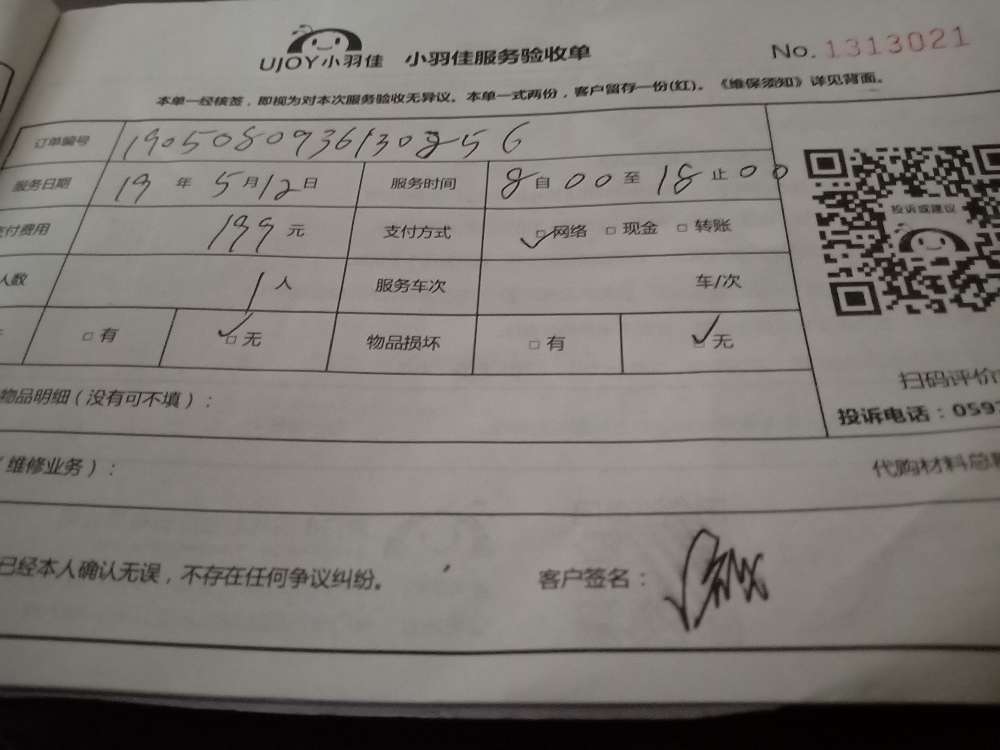 UJOY小羽佳 小羽佳服务验收单 No.1313021
本单一经核签，即视为对本次服务验收无异议。本单一式两份，客户留存一份(红)。《维保须知》详见背面。
订单编号 190508093613025 6
服务日期 19 年 5 月 12 日 服务时间 8 自 00 至 18 止 00
付费用 199 元 支付方式 ✓□网络 □现金 □转账
人数 1 人 服务车次 车/次
□有 ✓□无 物品损坏 □有 ✓□无
投诉或建议
扫码评价
物品明细（没有可不填）：
投诉电话：059
（维修业务）： 代购材料总
已经本人确认无误，不存在任何争议纠纷。 客户签名：